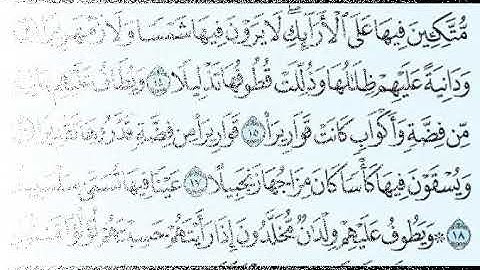 مُّتَّكِـِٔينَ فِيهَا عَلَى ٱلْأَرَآئِكِ ۖ لَا يَرَوْنَ فِيهَا شَمْسًا وَلَا زَمْهَرِيرًا
وَدَانِيَةً عَلَيْهِمْ ظِلَٰلُهَا وَذُلِّلَتْ قُطُوفُهَا تَذْلِيلًا ١٤ وَيُطَافُ عَلَيْهِم
مِّن فِضَّةٍ وَأَكْوَابٍ كَانَتْ قَوَارِيرَا۠ ١٥ قَوَارِيرَا۟ مِن فِضَّةٍ قَدَّرُوهَا تَقْدِيرًا
وَيُسْقَوْنَ فِيهَا كَأْسًا كَانَ مِزَاجُهَا زَنجَبِيلًا ١٧ عَيْنًا فِيهَا تُسَمَّىٰ سَلْسَبِيلًا
١٨ ۞ وَيَطُوفُ عَلَيْهِمْ وِلْدَٰنٌ مُّخَلَّدُونَ إِذَا رَأَيْتَهُمْ حَسِبْتَهُمْ لُؤْلُؤًا